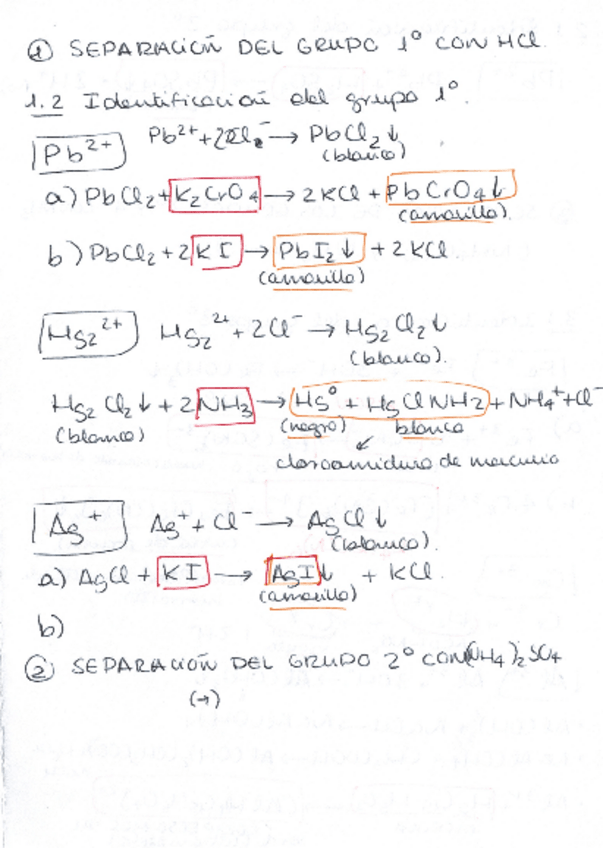 ① SEPARACIÓN DEL GRUPO 1º CON HCl.
1.2 Identificación del grupo 1º.
Pb²⁺ Pb²⁺ + 2Cl⁻ → PbCl₂↓
(blanco)
a) PbCl₂ + K₂CrO₄ → 2 KCl + PbCrO₄↓
(amarillo).
b) PbCl₂ + 2 KI → PbI₂↓ + 2 KCl.
(amarillo)
Hg₂²⁺ Hg₂²⁺ 2Cl⁻ → Hg₂Cl₂↓
(blanco).
Hg₂Cl₂↓ + 2NH₃ → Hg⁰ + HgClNH2 + NH₄⁺ + Cl⁻
(blanco) (negro) blanco
cloroamiduro de mercurio
Ag⁺ Ag⁺ + Cl⁻ → AgCl↓
(blanco).
a) AgCl + KI → AgI↓ + KCl.
(amarillo)
b)
② SEPARACIÓN DEL GRUPO 2º CON (NH₄)₂SO₄
(→)